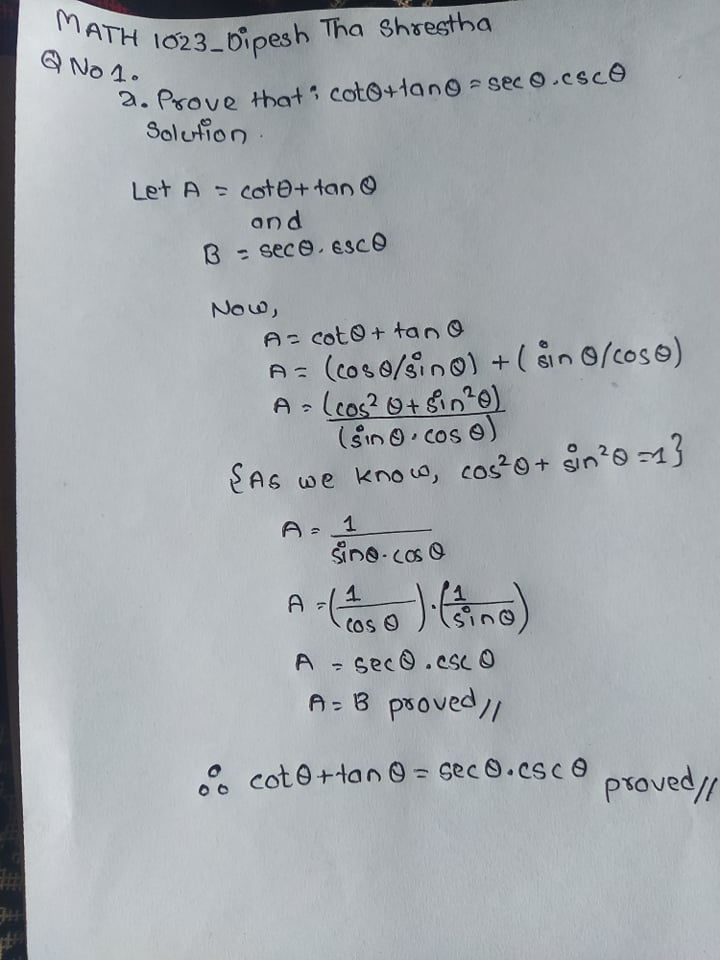 MATH 1023_Dipesh Tha Shrestha
Q No 1.
a. Prove that: cotθ+tanθ = secθ.cscθ
Solution.
Let A = cotθ+tanθ
and
B = secθ.cscθ
Now,
A = cotθ + tanθ
A = (cosθ/sinθ) + (sinθ/cosθ)
A = (cos²θ+sin²θ)
(sinθ.cosθ)
{As we know, cos²θ+ sin²θ =1}
A = 1
sinθ.cosθ
A = (1/cosθ).(1/sinθ)
A = secθ.cscθ
A = B proved//
∴ cotθ+tanθ = secθ.cscθ proved//